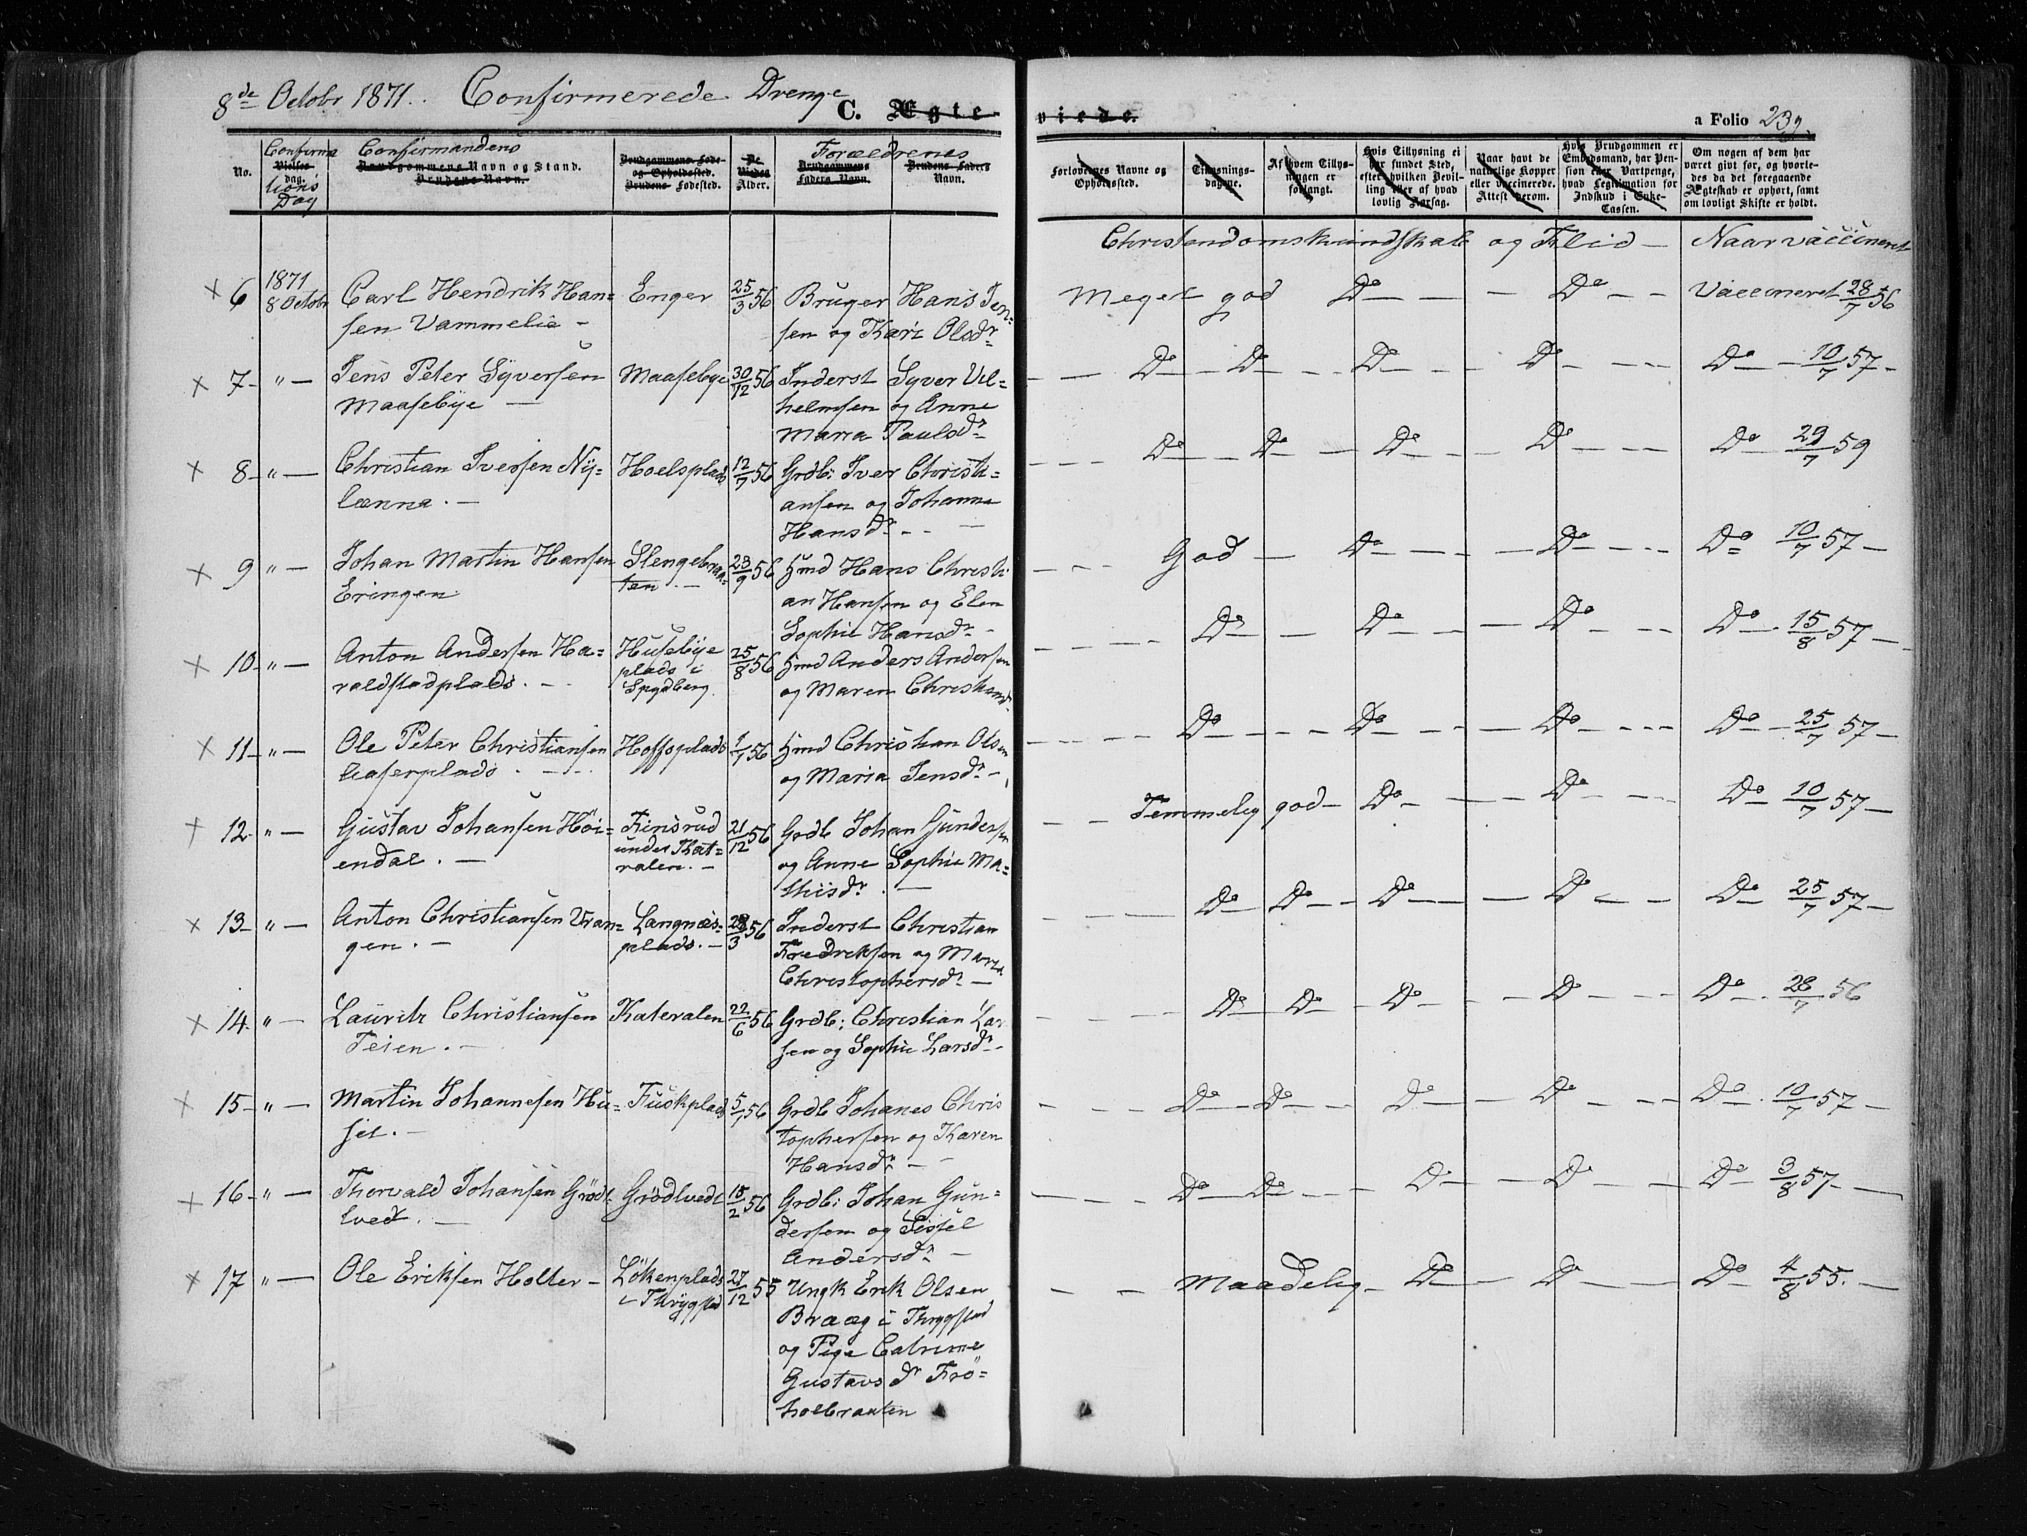 8de Octobr 1871. Confirmerede Drenge
C. Ægteviede.
a Folio 239
No.
Confirmations Dag
Confirmandens Navn og Stand.
Brudgommens Føde- og Opholdssted. Brudens Fødested.
De Viedes Alder.
Forældrenes
Brudgommens Faders Navn.
Brudens Faders Navn.
Forlovernes Navne og Opholdssted.
Tillysnings-dagene.
Af hvem Tillysningen er forlangt.
Hvis Tillysning ei har fundet Sted, efter hvilken Bevilling eller af hvad lovlig Aarsag.
Naar havt de naturlige Kopper eller vaccinerede. Attest derom.
Hvis Brudgommen er Embedsmand, har Pension eller Vartpenge, hvad Legitimation for Indskud i Enke-Cassen.
Om nogen af dem har været gift før, og hvorledes da det foregaaende Ægteskab er ophørt, samt om lovligt Skifte er holdt.
Christendomskundskab og Flid — Naar vaccineret
× 6 1871 8 Octobr Carl Hendrik Han= Enger 25/3 56 Bruger Hans Jen= Meget god Do — — Do — Vaccineret 28/7 56
sen Vammelie — sen og Kari Olsdr
× 7 — " — Jens Peter Syversen Maasebye 30/12 56 Inderst Syver Vil= Do — Do — Do — Do — Do — 10/7 57 —
Maasebye — helmsen og Anne
Maria Paulsdr
× 8 — " — Christian Iversen Ny= Hoelsplads 12/7 56 Grdb: Iver Christi= Do — Do — Do — Do — Do — 29/7 59
lænna. — ansen og Johanne
Hansdr —
× 9 " — Johan Martin Hansen Slengebraa= 23/9 56 Hmd Hans Christi God — Do — Do — Do 10/7 57 —
Eringen ten. — an Hansen og Elen
Sophie Hansdr —
× 10 — " — Anton Andersen Ha= Husebye 25/8 56 Hmd Anders Andersen Do — Do — Do — Do — 15/8 57 —
raldstadplads. — plads i og Maren Christiansdr
Spydberg.
× 11 — " — Ole Peter Christiansen Hoffsplads 1/7 56 Hmd Christian Olsen Do — Do — Do — Do — 25/7 57 —
plads. — og Maria Jensdr —
12 " — Gustav Johansen Høi= Finsrud 21/12 56 Grdb Johan Gundersen Temmelig god — Do — Do — Do — 10/7 57 —
endal. — under Kat= og Anne Sophie Ma=
ralen. — thisdr. —
× 13 — " — Anton Christiansen Vran= Langnæs= 56 Inderst Christian Do — Do — Do — Do — Do — 25/7 57 —
gen. — plads. — Fredriksen og Maria
Christophersdr —
× 14. " — Lauritz Christiansen Kateralen 22/6 56 Grdb: Christian Lar Do — Do — Do — Do — Do — 28/7 56
Teien. — sen og Sophie Larsdr —
× 15 — " — Martin Johannesen Hu= Fuskplads 5/7 56 Grdb Johanes Chris Do — Do — Do — Do — Do — 10/7 57 —
sit. — tophersen og Karen
Hansdr —
× 16 — " — Thorvald Johansen Grødt Grødtvedt 15/2 56 Grdb: Johan Gun= Do — Do — Do — Do — Do — 3/8 57 —
vedt. — dersen og Sissel
Andersdr —
× 17 " — Ole Eriksen Holter — Løkenplads 27/12 55 Ungk Erik Olsen Maadelig — Do — Do — Do — 4/8 55. —
i Thrygstad Braag i Thrygstad
og Pige Catrine
Gustavsdr Frø=
holbraaten